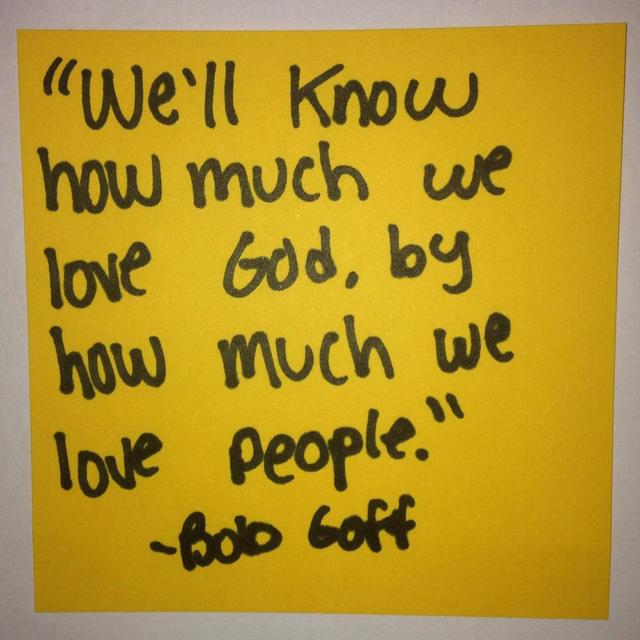 "We'll Know
how much we
love God, by
how much we
love people."
-Bob Goff